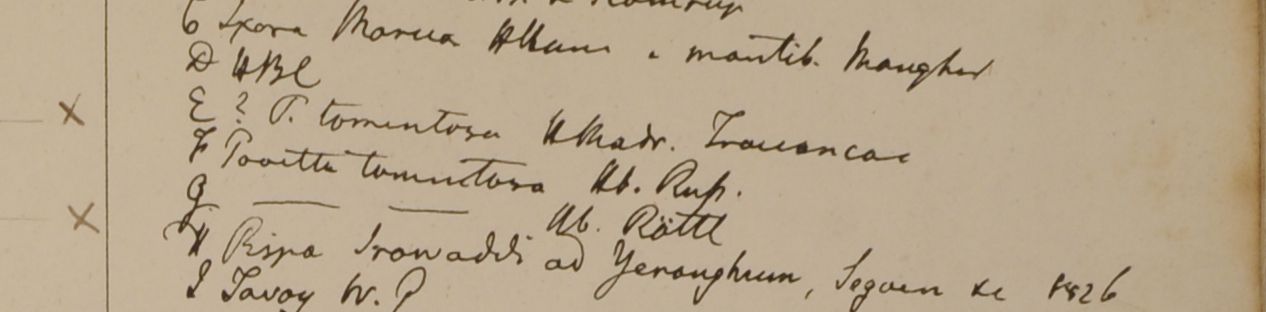 C Ixora Marua HHam a montib. Mougher
D HBC
E ? P. tomentosa HMadr. Travancae
F Pavetta tomentosa Hb. Russ.
G — — Hb. Röttl
H Ripa Irawaddi ad Yenanghum, Segaen &c 1826
I Tavoy W. G